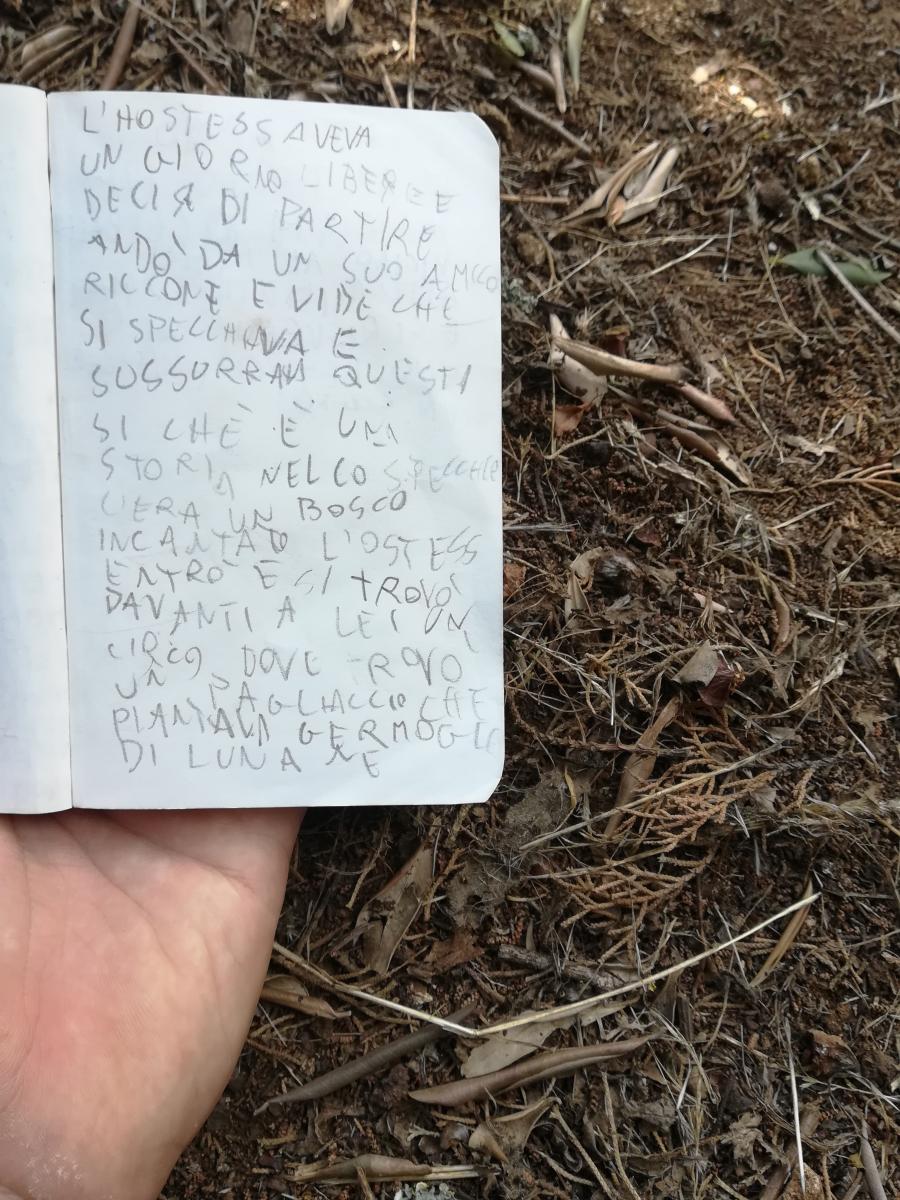 L'HOSTESS AVEVA
UN GIORNO LIBERE E
DECISA DI PARTIRE
ANDÒ DA UN SUO AMICO
RICCONE E VIDE CHE
SI SPECCHIAVA E
SUSSURRAVA QUESTA
SI CHÈ È UNA
STORIA NELLO SPECCHIO
C'ERA UN BOSCO
INCANTATO L'OSTESS
ENTRÒ E SI TROVÒ
DAVANTI A LEI UN
CIRCO DOVE TROVO
UN PAGLIACCIO CHE
PIANTAVA GERMOGLI
DI LUNA NE